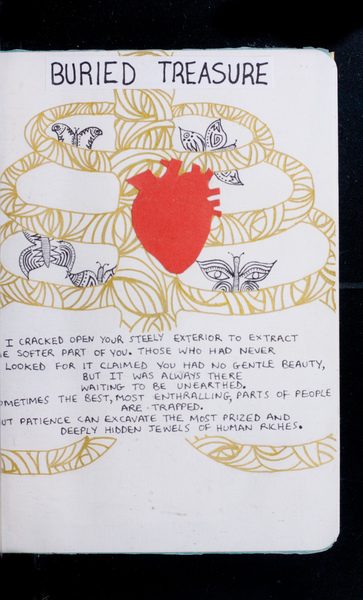 BURIED TREASURE
I CRACKED OPEN YOUR STEELY EXTERIOR TO EXTRACT
SOFTER PART OF YOU. THOSE WHO HAD NEVER
LOOKED FOR IT CLAIMED YOU HAD NO GENTLE BEAUTY,
BUT IT WAS ALWAYS THERE
WAITING TO BE UNEARTHED.
OMETIMES THE BEST, MOST ENTHRALLING, PARTS OF PEOPLE
ARE TRAPPED.
UT PATIENCE CAN EXCAVATE THE MOST PRIZED AND
DEEPLY HIDDEN JEWELS OF HUMAN RICHES.